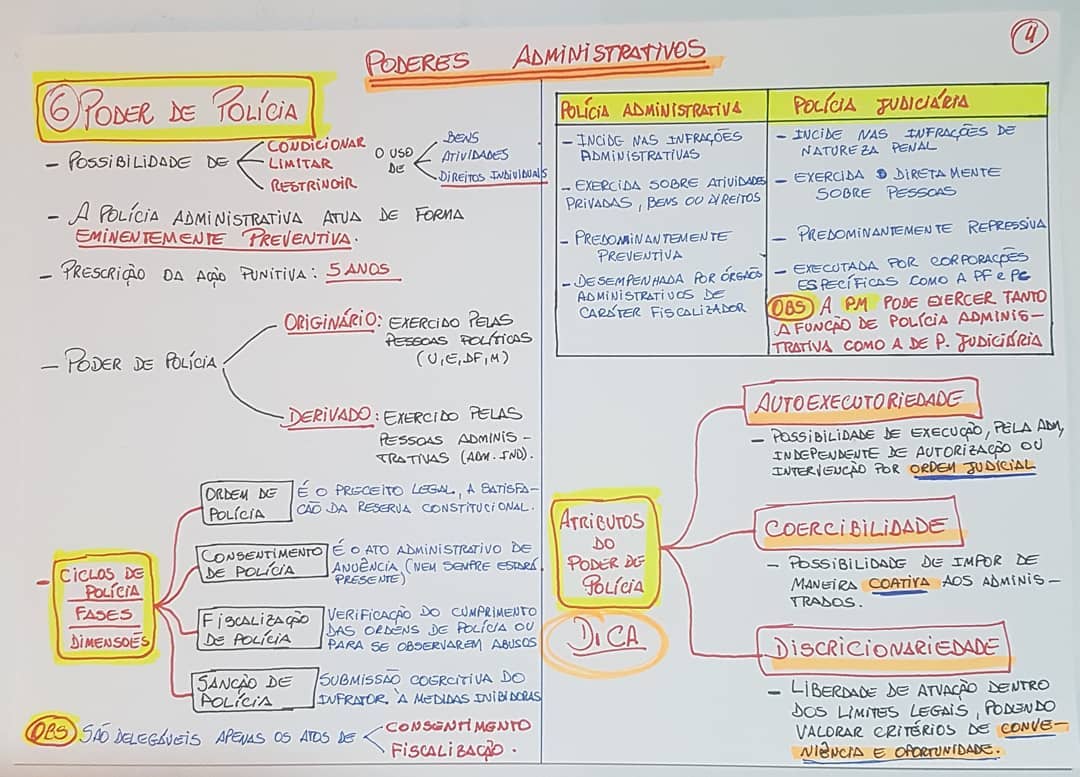 PODERES ADMINISTRATIVOS
4
6 PODER DE POLÍCIA
- POSSIBILIDADE DE
CONDICIONAR
LIMITAR
RESTRINGIR
O USO
DE
BENS
ATIVIDADES
DIREITOS INDIVIDUAIS
- A POLÍCIA ADMINISTRATIVA ATUA DE FORMA
EMINENTEMENTE PREVENTIVA.
- PRESCRIÇÃO DA AÇÃO PUNITIVA: 5 ANOS
- PODER DE POLÍCIA
ORIGINÁRIO: EXERCIDO PELAS
PESSOAS POLÍTICAS
(U,E,DF,M)
DERIVADO: EXERCIDO PELAS
PESSOAS ADMINIS-
TRATIVAS (ADM. IND).
- CICLOS DE
POLÍCIA
FASES
DIMENSOES
ORDEM DE
POLÍCIA
É O PRECEITO LEGAL, A SATISFA-
CÃO DA RESERVA CONSTITUCIONAL.
CONSENTIMENTO
DE POLÍCIA
É O ATO ADMINISTRATIVO DE
ANUÊNCIA (NEM SEMPRE ESTARÁ
PRESENTE)
FISCALIZAÇÃO
DE POLÍCIA
VERIFICAÇÃO DO CUMPRIMENTO
DAS ORDENS DE POLÍCIA OU
PARA SE OBSERVAREM ABUSOS
SANCÃO DE
POLÍCIA
SUBMISSÃO COERCITIVA DO
INFRATOR À MEDIDAS INIBIDORAS
OBS SÃO DELEGÁVEIS APENAS OS ATOS DE
CONSENTIMENTO
FISCALIZAÇÃO.
POLÍCIA ADMINISTRATIVA
- INCIDE NAS INFRAÇÕES
ADMINISTRATIVAS
- EXERCIDA SOBRE ATIVIDADES
PRIVADAS, BENS OU DIREITOS
- PREDOMINANTEMENTE
PREVENTIVA
- DESEMPENHADA POR ÓRGÃOS
ADMINISTRATIVOS DE
CARÁTER FISCALIZADOR
POLÍCIA JUDICIÁRIA
- INCIDE NAS INFRAÇÕES DE
NATUREZA PENAL
- EXERCIDA DIRETAMENTE
SOBRE PESSOAS
- PREDOMINANTEMENTE REPRESSIVA
- EXECUTADA POR CORPORAÇÕES
ESPECÍFICAS COMO A PF e PC
OBS A PM PODE EXERCER TANTO
A FUNÇÃO DE POLÍCIA ADMINIS-
TRATIVA COMO A DE P. JUDICIÁRIA
ATRIBUTOS
DO
PODER DE
POLÍCIA
DICA
AUTOEXECUTORIEDADE
- POSSIBILIDADE DE EXECUÇÃO, PELA ADM,
INDEPENDENTE DE AUTORIZAÇÃO OU
INTERVENÇÃO POR ORDEM JUDICIAL
COERCIBILIDADE
- POSSIBILIDADE DE IMPOR DE
MANEIRA COATIVA AOS ADMINIS-
TRADOS.
DISCRICIONARIEDADE
- LIBERDADE DE ATUAÇÃO DENTRO
DOS LIMITES LEGAIS, PODENDO
VALORAR CRITÉRIOS DE CONVE-
NIÊNCIA E OPORTUNIDADE.